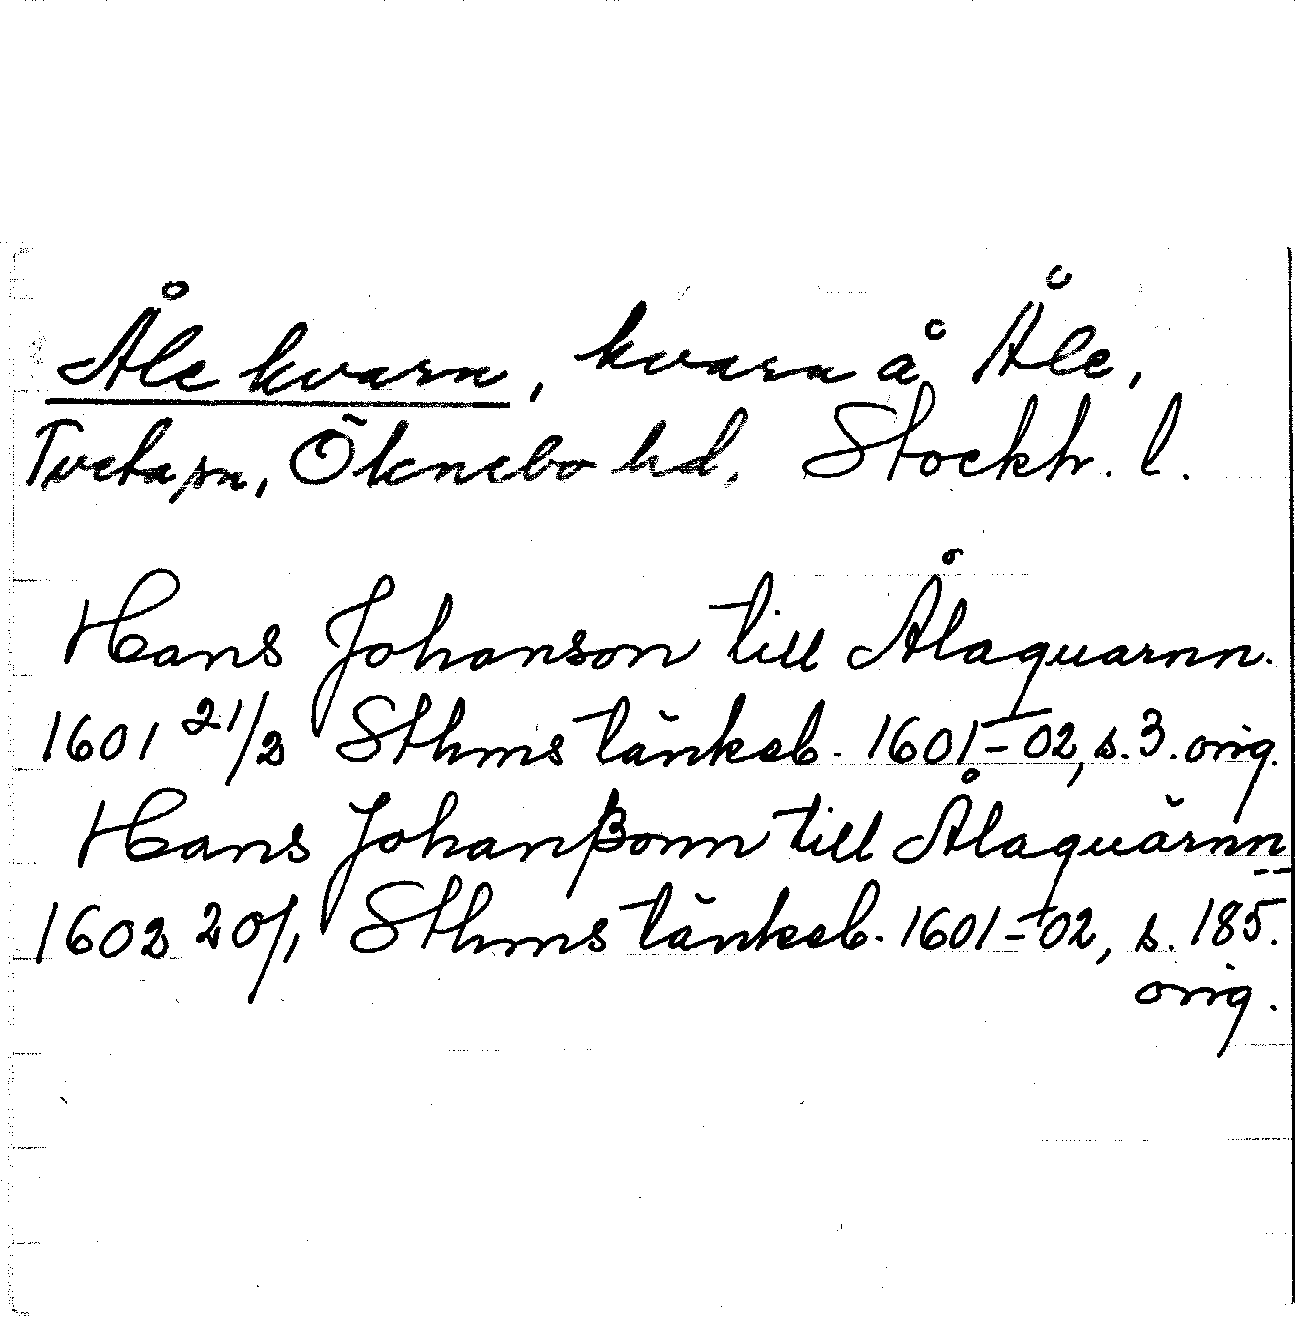 Åle kvarn, kvarn å Åle,
Tveta sn, Öknebo hd, Stockh. l.
Hans Johanson till Ålaquarnn.
1601 21/2 Sthms tänkeb. 1601–02, s. 3. orig.
Hans Johanßonn till Ålaquärnn
1602 20/1 Sthms tänkeb. 1601–02, s. 185.
orig.